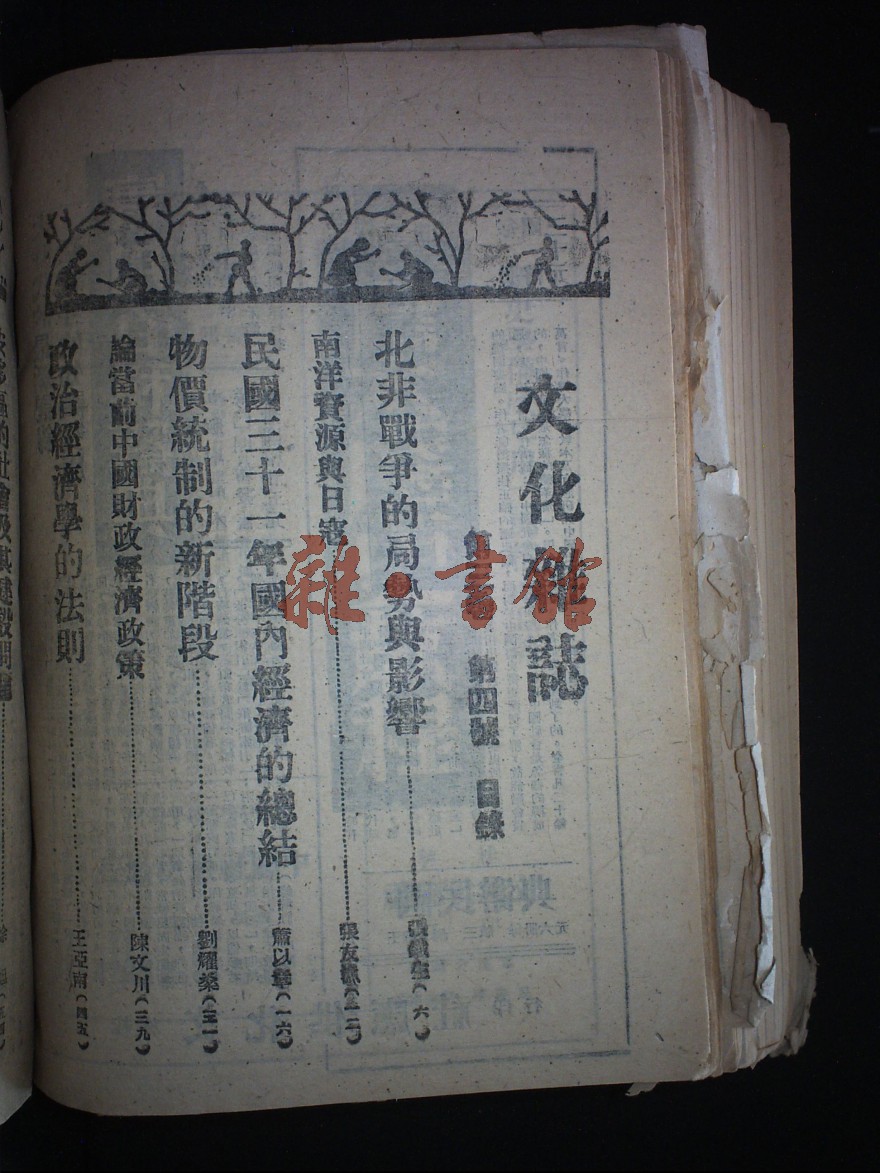 文化雜誌
第 第四號 目錄
北非戰爭的局勢與影響……張鐵生(六)
南洋資源與日寇……張友漁(一二)
民國三十一年國內經濟的總結……蕭以華(一六)
物價統制的新階段……劉耀燊(三一)
論當前中國財政經濟政策……陳文川(三九)
政治經濟學的法則……王亞南(四五)
雜·書館